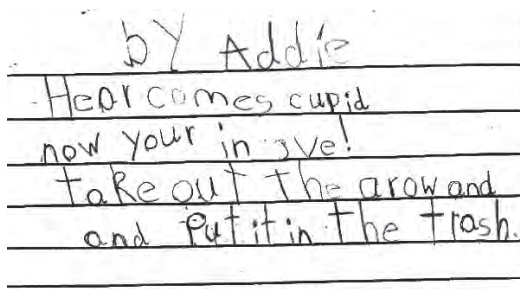 by Addie
Hear comes cupid
now your in love!
take out the arow and
and put it in the trash.